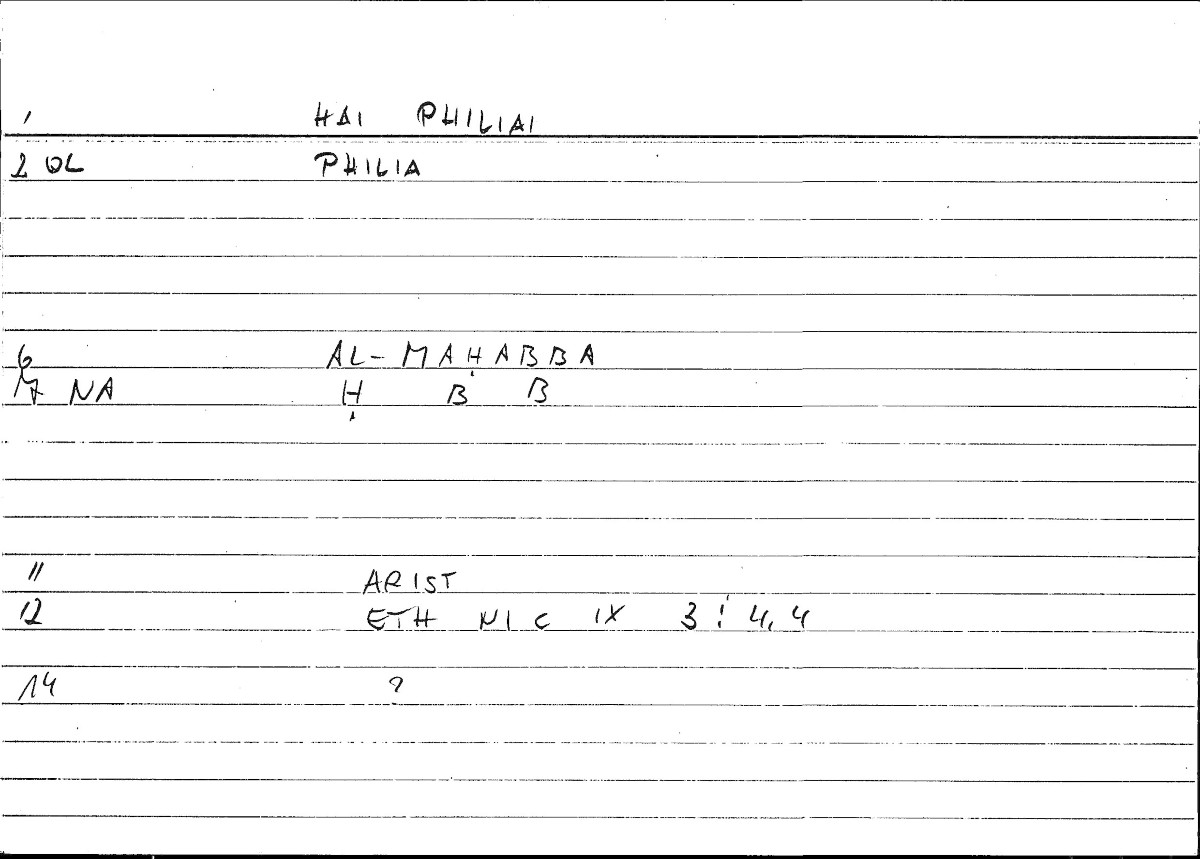 1 HAI PHILIAI
2 OL PHILIA
6 AL-MAḤABBA
7 NA Ḥ B B
11 ARIST
12 ETH NIC IX 3 ! 4,4
14 ?